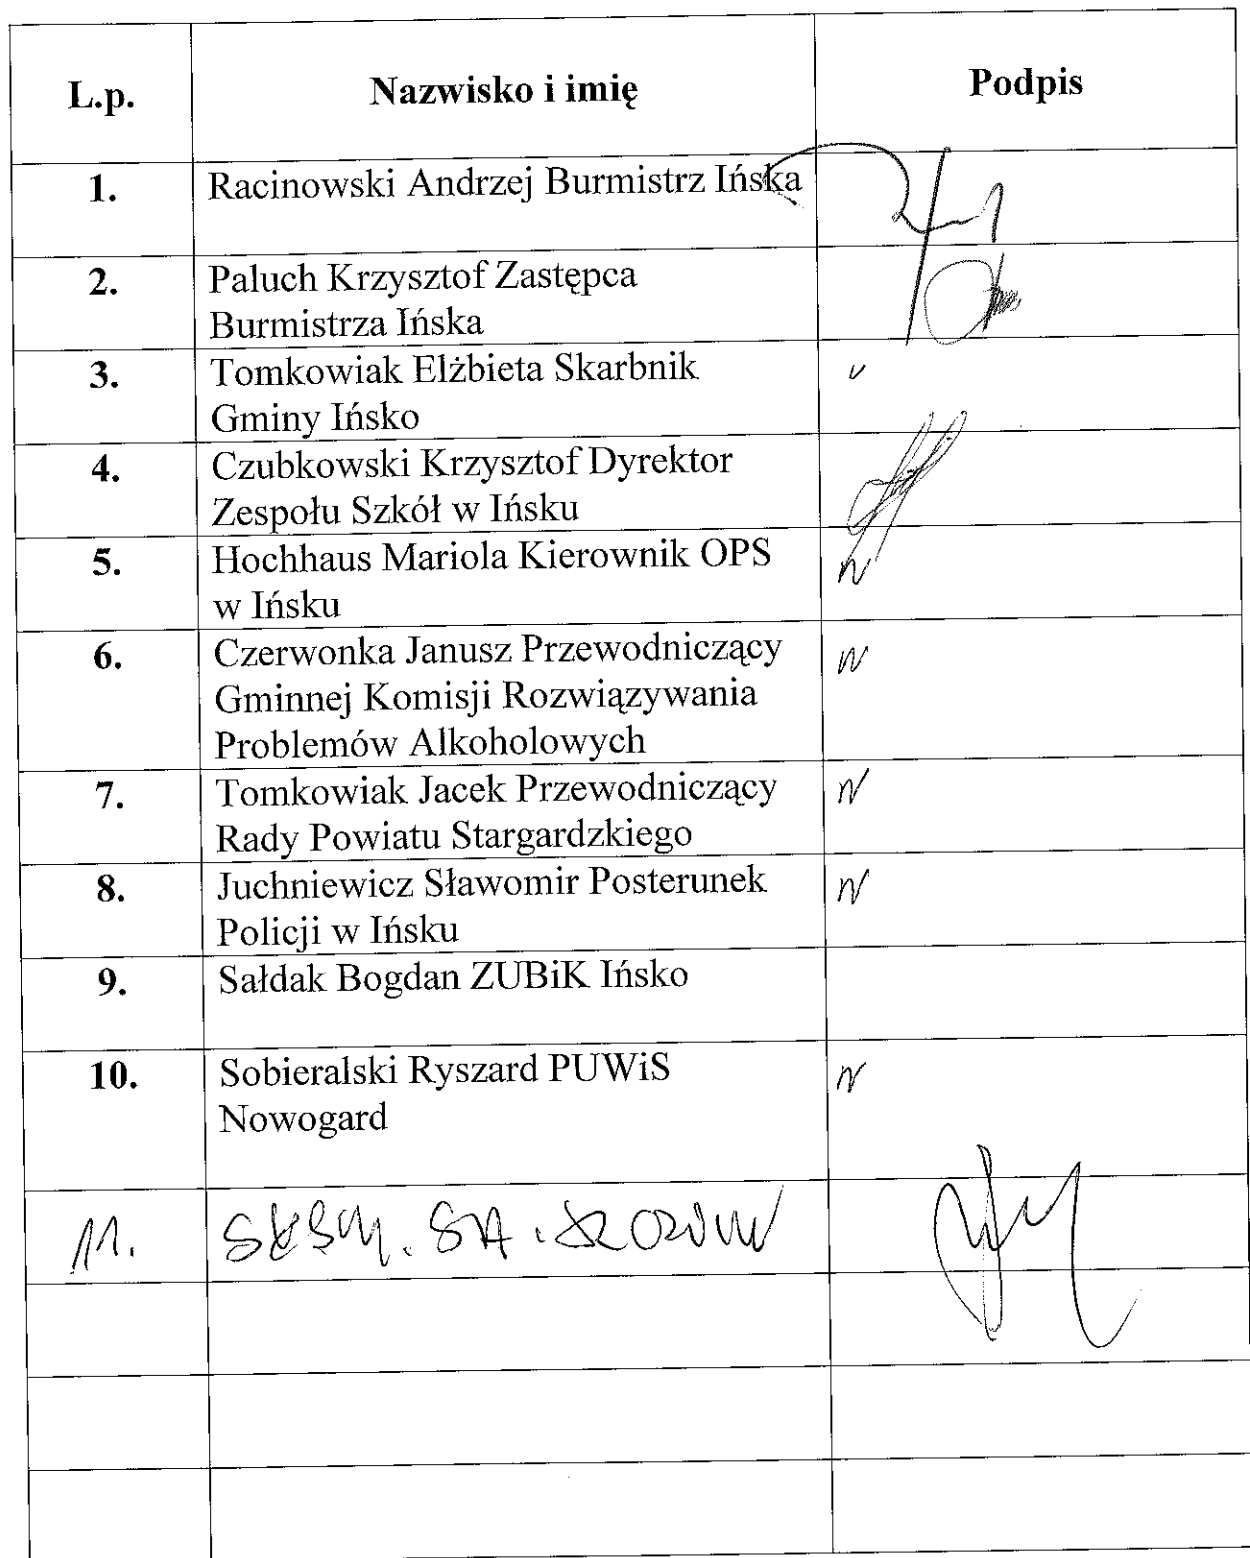 L.p. Nazwisko i imię Podpis
1. Racinowski Andrzej Burmistrz Ińska
2. Paluch Krzysztof Zastępca
Burmistrza Ińska
3. Tomkowiak Elżbieta Skarbnik v
Gminy Ińsko
4. Czubkowski Krzysztof Dyrektor
Zespołu Szkół w Ińsku
5. Hochhaus Mariola Kierownik OPS n
w Ińsku
6. Czerwonka Janusz Przewodniczący n
Gminnej Komisji Rozwiązywania
Problemów Alkoholowych
7. Tomkowiak Jacek Przewodniczący n
Rady Powiatu Stargardzkiego
8. Juchniewicz Sławomir Posterunek n
Policji w Ińsku
9. Sałdak Bogdan ZUBiK Ińsko
10. Sobieralski Ryszard PUWiS n
Nowogard
11.